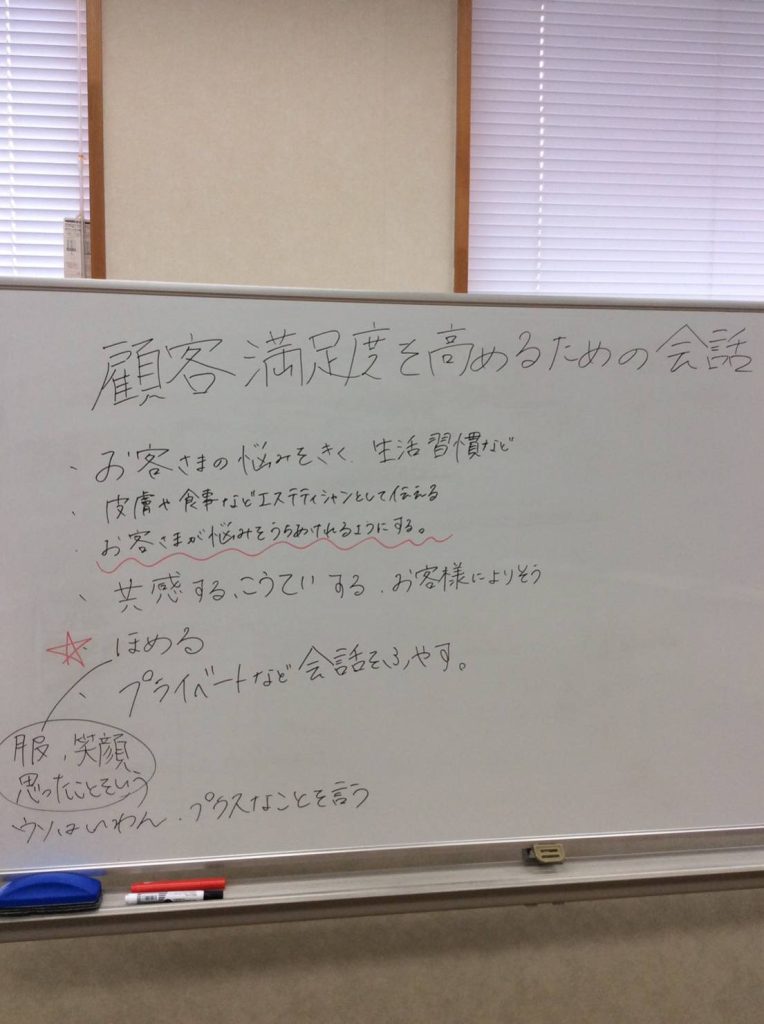 顧客満足度を高めるための会話
・お客さまの悩みをきく、生活習慣など
・皮膚や食事などエステティシャンとして伝える
・お客さまが悩みをうちあけれるようにする。
・共感する、こうていする、お客様によりそう
☆・ほめる
・プライベートなど会話をふやす。
服、笑顔
思ったことをいう
ウソはいわん、プラスなことを言う